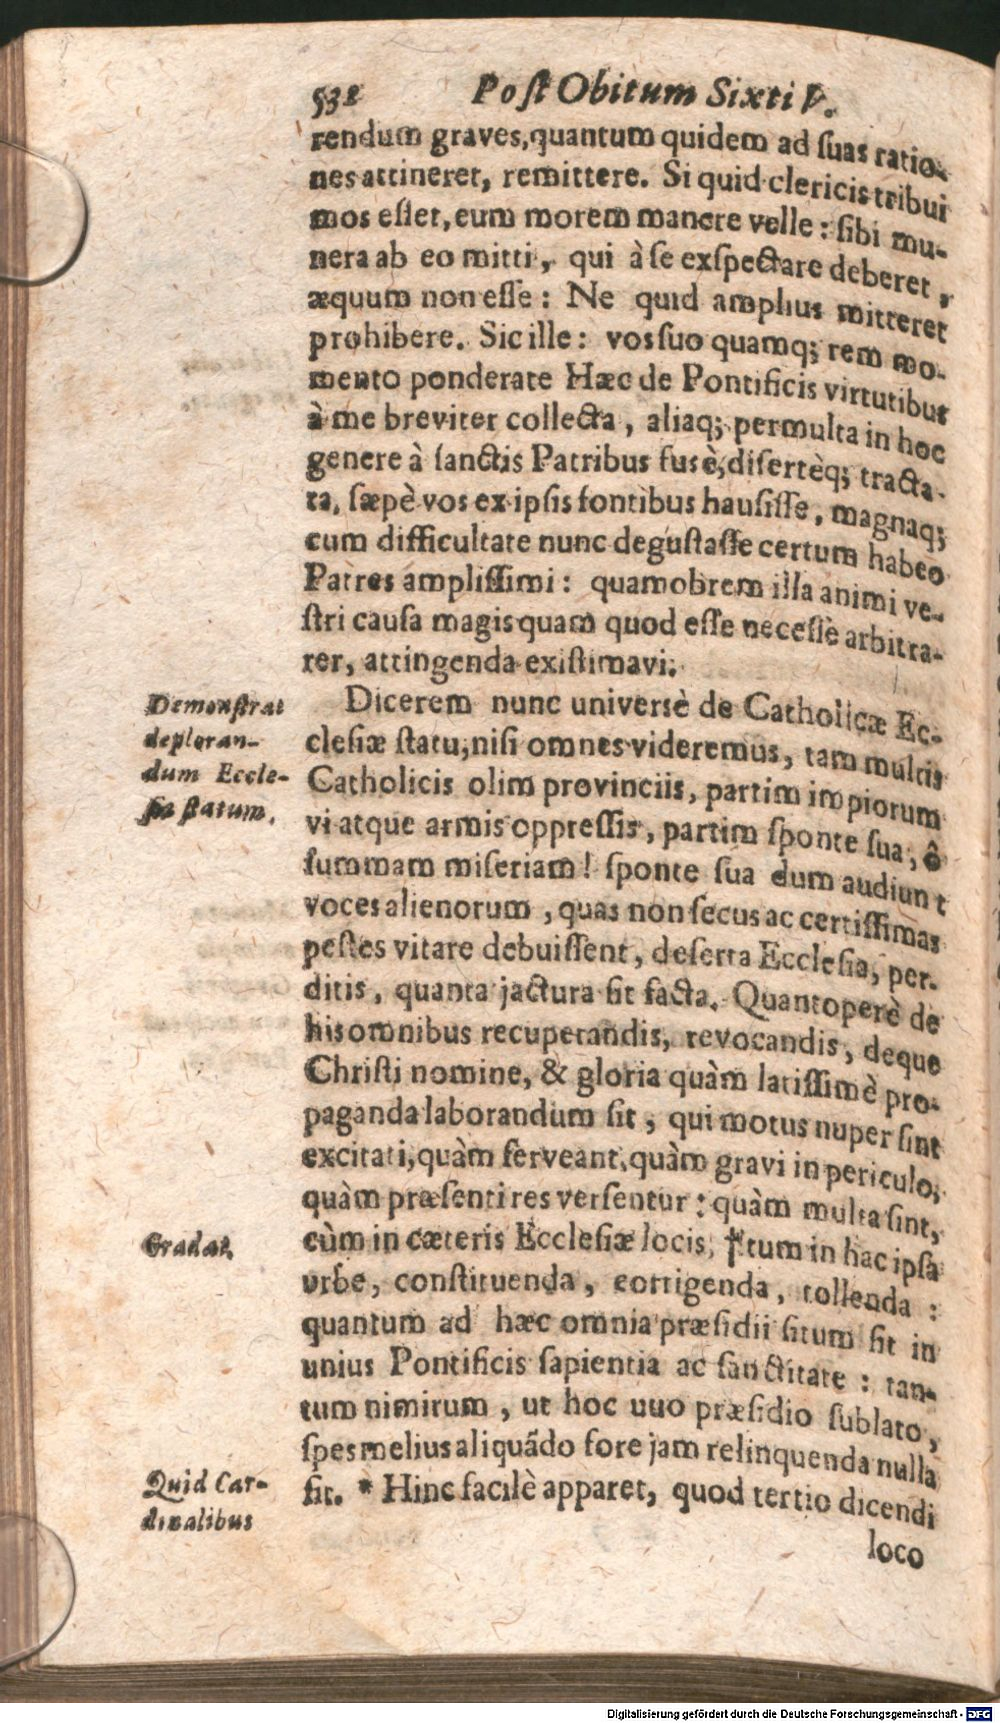 532 Post Obitum Sixti V.
rendum graves, quantum quidem ad suas ratio-
nes attineret, remittere. Si quid clericis tribui
mos esset, eum morem manere velle: sibi mu-
nera ab eo mitti, qui à se exspectare deberet,
æquum non esse: Ne quid amplius mitteret
prohibere. Sic ille: vos suo quamq; rem mo-
mento ponderate Hæc de Pontificis virtutibus
à me breviter collecta, aliaq; permulta in hoc
genere à sanctis Patribus fusè, disertèq; tracta-
ta, sæpè vos ex ipsis fontibus hausisse, magnaq;
cum difficultate nunc degustasse certum habeo
Patres amplissimi: quamobrem illa animi ve-
stri causa magis quam quod esse necessè arbitra-
rer, attingenda existimavi.
Demonstrat
deploran-
dum Eccle-
siæ statum.
Dicerem nunc universè de Catholicæ Ec-
clesiæ statu, nisi omnes videremus, tam multis
Catholicis olim provinciis, partim impiorum
vi atque armis oppressis, partim sponte sua, ô
summam miseriam! sponte sua dum audiunt
voces alienorum, quas non secus ac certissimas
pestes vitare debuissent, deserta Ecclesia, per-
ditis, quanta jactura sit facta. Quantoperè de
his omnibus recuperandis, revocandis, deque
Christi nomine, & gloria quàm latissimè pro-
paganda laborandum sit, qui motus nuper sint
excitati, quàm ferveant, quàm gravi in periculo,
quàm præsenti res versentur: quàm multa sint,
Gradat.
cùm in cæteris Ecclesiæ locis, † tum in hac ipsa
urbe, constituenda, corrigenda, tollenda:
quantum ad hæc omnia præsidii situm sit in
unius Pontificis sapientia ac sanctitate: tan-
tum nimirum, ut hoc uuo præsidio sublato,
spes melius aliquãdo fore jam relinquenda nulla
Quid Car-
dinalibus
sit. * Hinc facilè apparet, quod tertio dicendi
loco
Digitalisierung gefördert durch die Deutsche Forschungsgemeinschaft - DFG